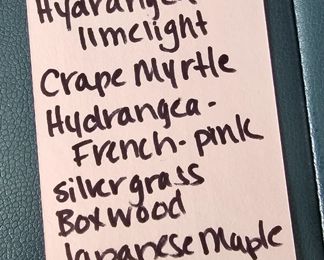 Hydrangea
limelight
Crape Myrtle
Hydrangea-
French-pink
silvergrass
Boxwood
Japanese Maple